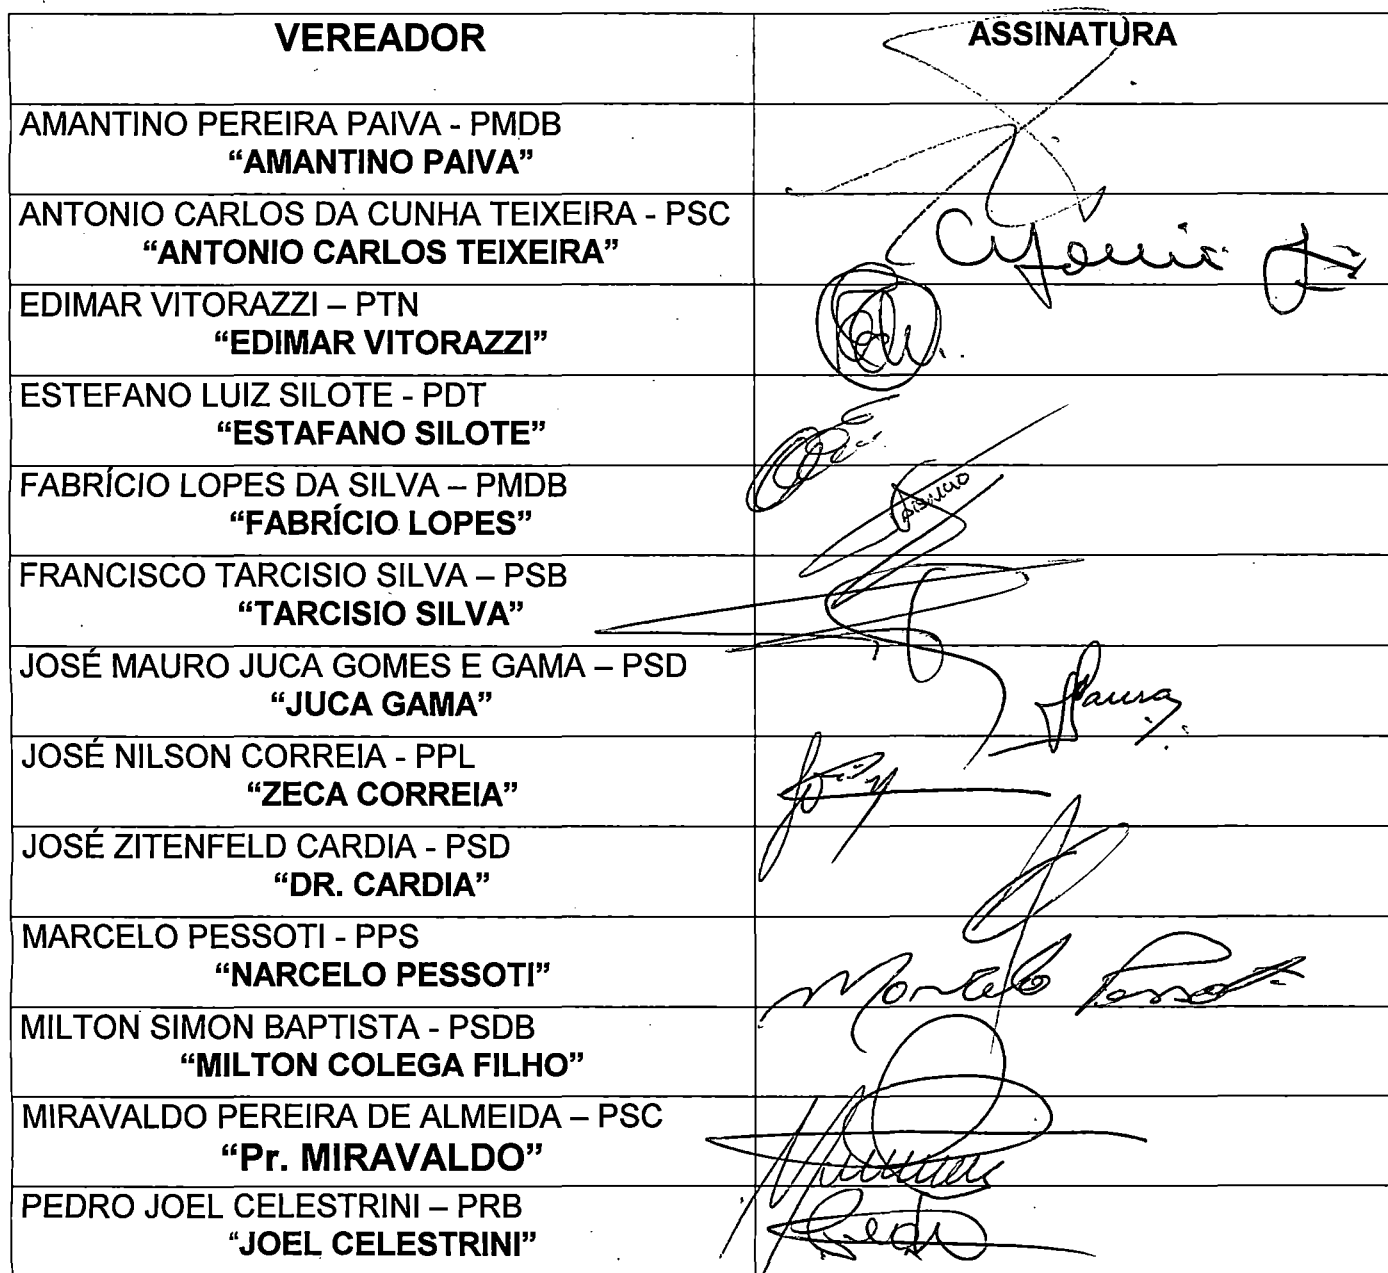 VEREADOR
ASSINATURA
AMANTINO PEREIRA PAIVA - PMDB
“AMANTINO PAIVA”
ANTONIO CARLOS DA CUNHA TEIXEIRA - PSC
“ANTONIO CARLOS TEIXEIRA”
EDIMAR VITORAZZI – PTN
“EDIMAR VITORAZZI”
ESTEFANO LUIZ SILOTE - PDT
“ESTAFANO SILOTE”
FABRÍCIO LOPES DA SILVA – PMDB
“FABRÍCIO LOPES”
FRANCISCO TARCISIO SILVA – PSB
“TARCISIO SILVA”
JOSÉ MAURO JUCA GOMES E GAMA – PSD
“JUCA GAMA”
JOSÉ NILSON CORREIA - PPL
“ZECA CORREIA”
JOSÉ ZITENFELD CARDIA - PSD
“DR. CARDIA”
MARCELO PESSOTI - PPS
“NARCELO PESSOTI”
Marcelo Pessoti
MILTON SIMON BAPTISTA - PSDB
“MILTON COLEGA FILHO”
MIRAVALDO PEREIRA DE ALMEIDA – PSC
“Pr. MIRAVALDO”
PEDRO JOEL CELESTRINI – PRB
“JOEL CELESTRINI”